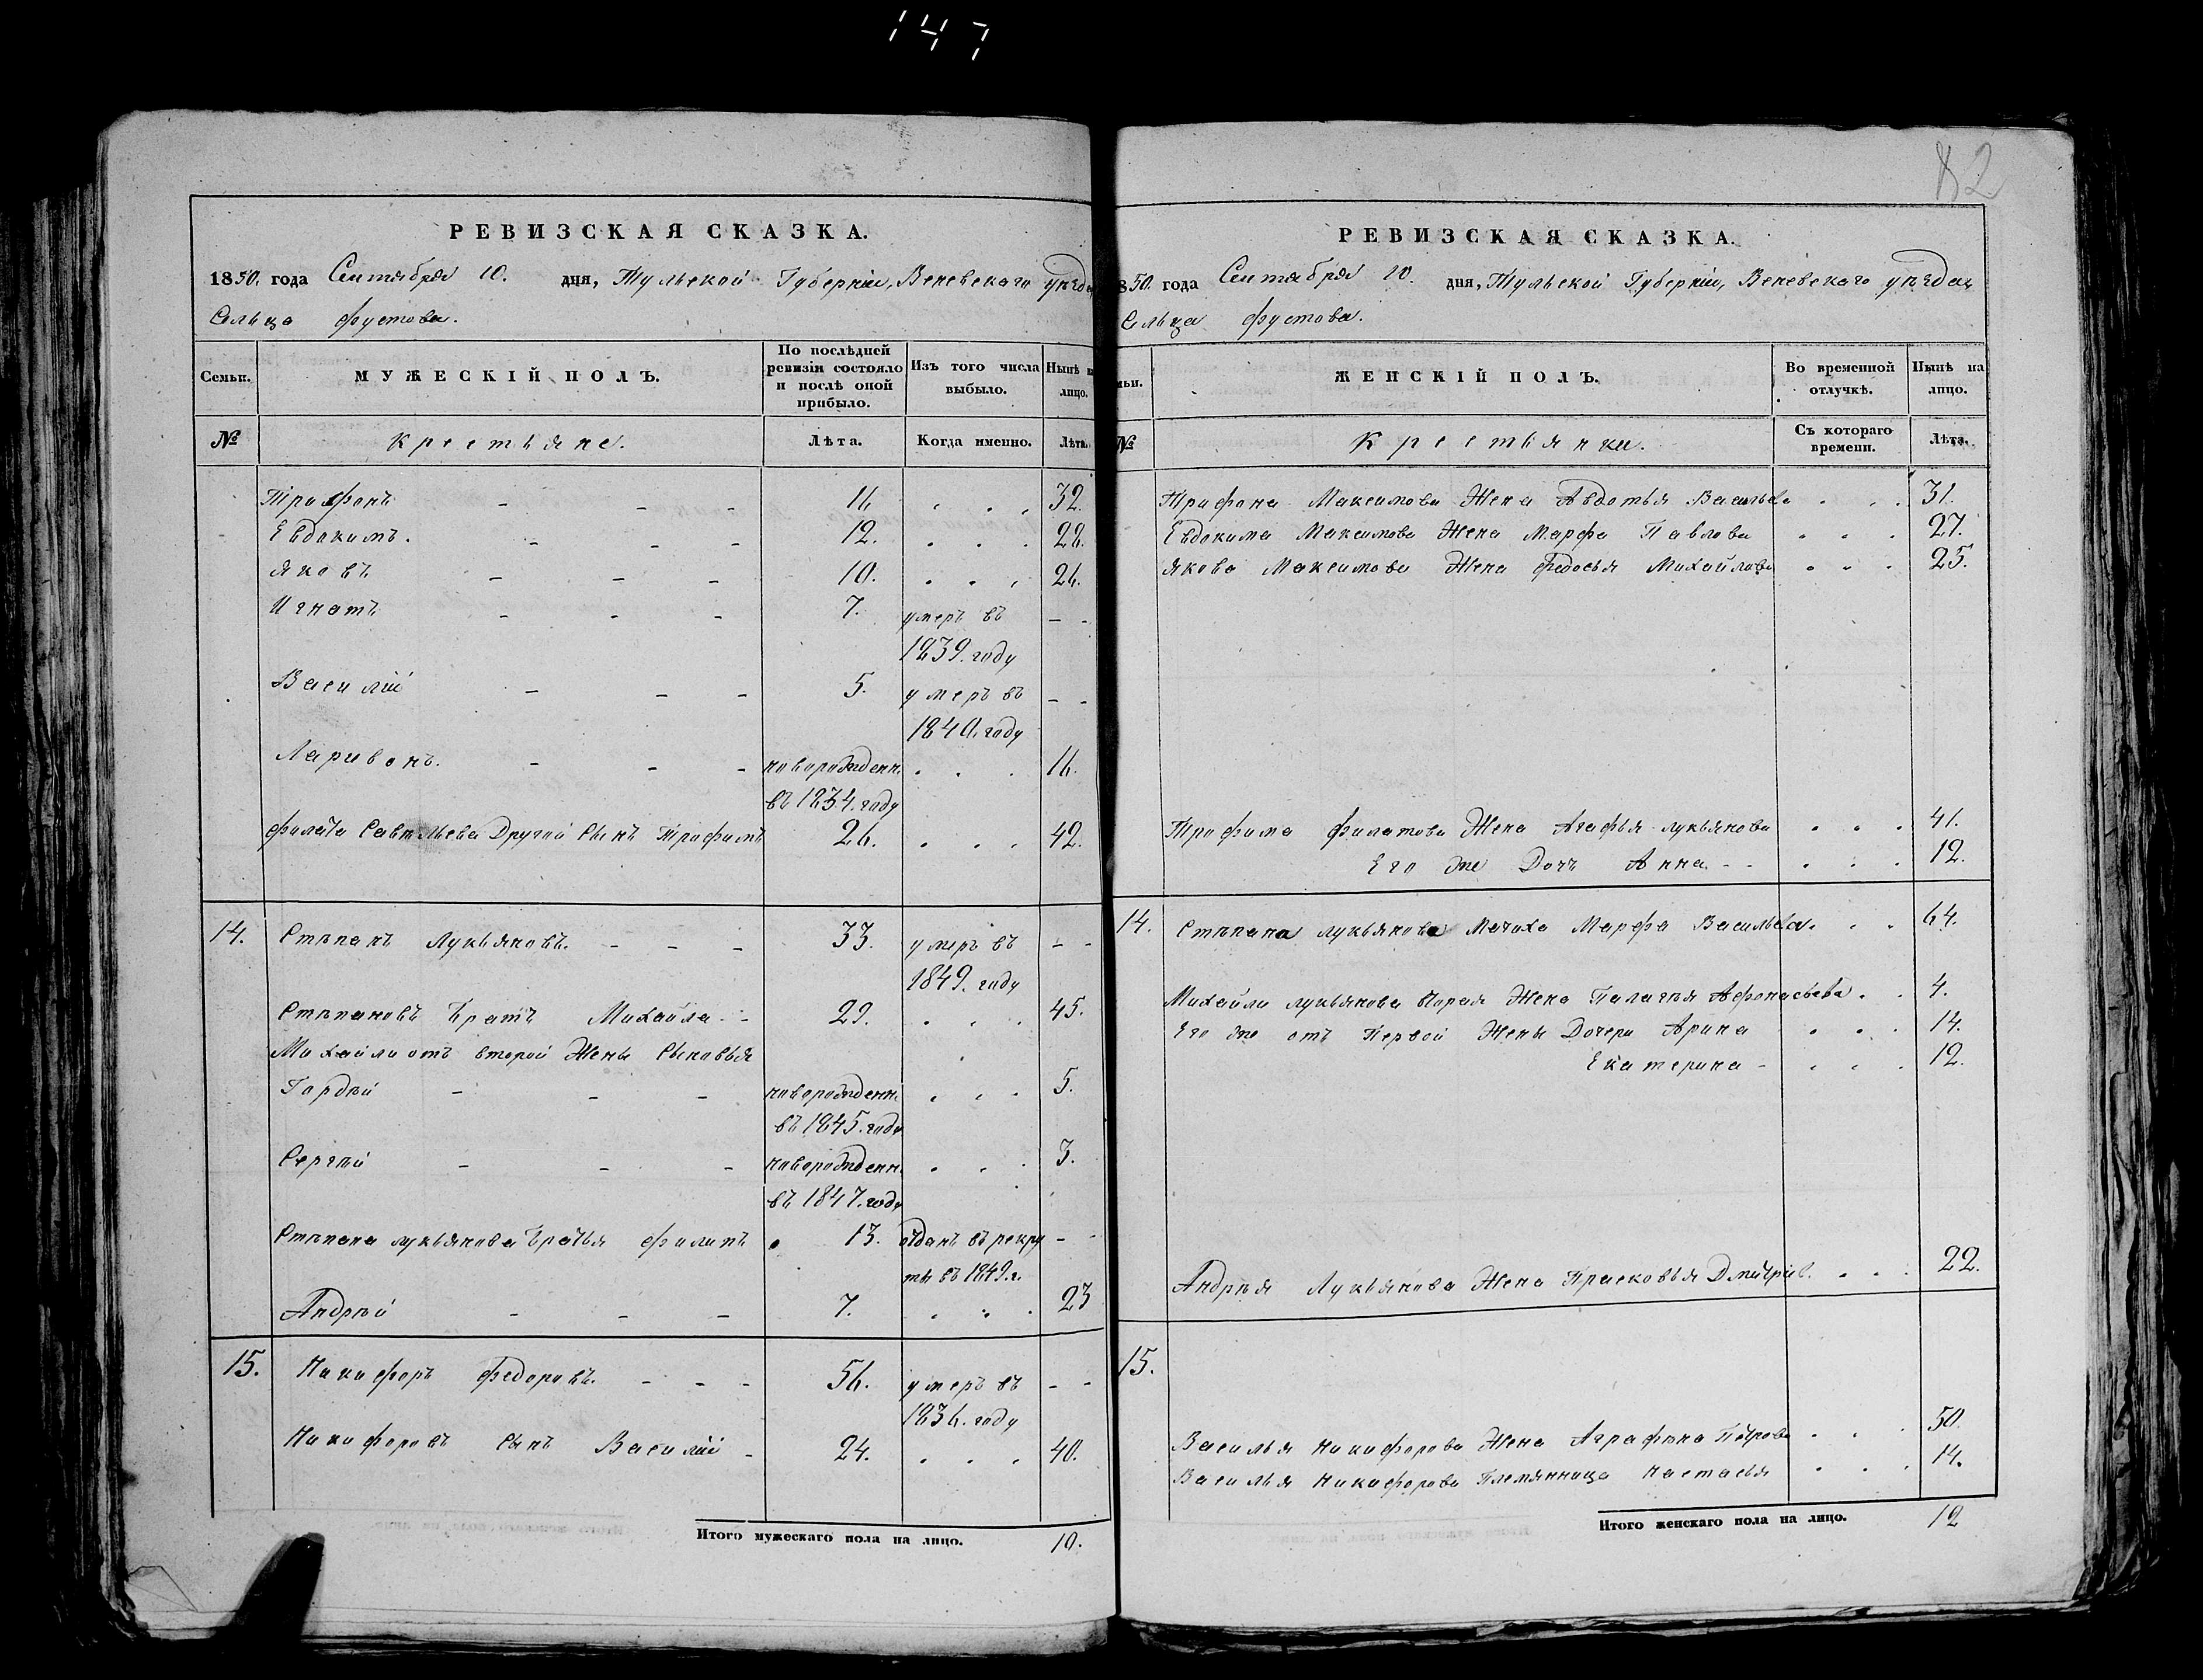 147
РЕВИЗСКАЯ СКАЗКА.
1850. года Сентября 10. дня, Тульской Губернiи, Веневскаго уѣзда
Сельца Фустова.
Семьи. МУЖЕСКIЙ ПОЛЪ. По послѣдней ревизiи состояло и послѣ оной прибыло. Изъ того числа выбыло. Нынѣ на лицо.
№ Крестьяне. Лѣта. Когда именно. Лѣта.
Трифонъ - - - 16. . . . 32.
Евдокимъ. - - - 12. . . . 28.
Яковъ - - - 10. . . . 26.
Игнатъ - - - 7. умеръ въ - -
1839. году
Василiй - - - 5. умеръ въ - -
1840. году
Ларивонъ. - - - новорожденн. . . . 16.
въ 1834. году
Филата Савельева Другой Сынъ Трофимъ 26. . . . 42.
14. Степанъ Лукьяновъ. - - - 33. умеръ въ - -
1849. году
Степановъ Братъ Михайла - - 29. . . . 45.
Михайлы отъ второй Жены Сыновья
Гордѣй - - - новорожденн. . . . 5.
въ 1845. году
Сергѣй - - - новорожденн. . . . 3.
въ 1847. году
Степана Лукьянова Братья Филипъ 13. отданъ въ рекру - -
ты въ 1849. г.
Андрѣй - - - 7. . . . 23
15. Никифоръ Федоровъ. - - - 56. умеръ въ - -
1836. году
Никифоровъ Сынъ Василiй - 24. . . . 40.
Итого мужескаго пола на лицо. 10.
82
РЕВИЗСКАЯ СКАЗКА.
850. года Сентября 10. дня, Тульской Губернiи, Веневскаго уѣзда
Сельца Фустова.
мьи. ЖЕНСКIЙ ПОЛЪ. Во временной отлучкѣ. Нынѣ на лицо.
№ Крестьянки. Съ котораго времени. Лѣта.
Трифона Максимова Жена Авдотья Васильева . . . 31.
Евдокима Максимова Жена Марфа Павлова . . . 27.
Якова Максимова Жена Федосья Михайлова . . . 25.
Трофима Филатова Жена Агафья Лукьянова . . . 41.
Его же Дочь Анна - - . . . 12.
14. Степана Лукьянова Мачиха Марфа Васильева. . . 64.
Михайлы Лукьянова Жена Палагея Афонасьева . . 4.
Его же отъ Первой Жены Дочери Арина . . . 14.
Екатерина - . . . 12.
Андрѣя Лукьянова Жена Прасковья Дмитрiев. . . . 22.
15.
Василья Никифорова Жена Аграфена Петрова . . . 50.
Василья Никифорова Племянница Настасья . . . 14.
Итого женскаго пола на лицо. 12